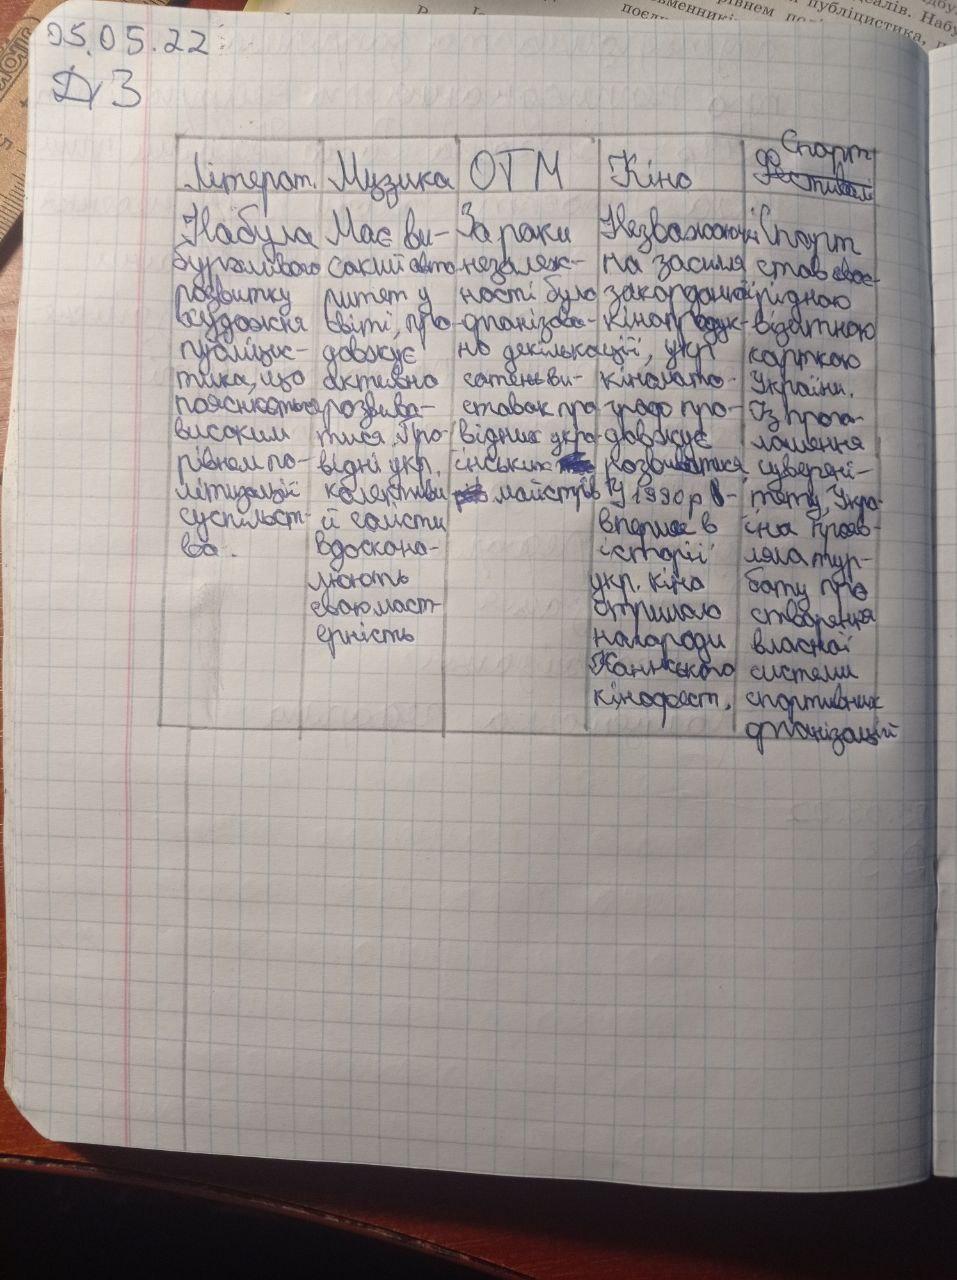 05.05.22
ДЗ
Літерат.
Набула
бурхливого
розвитку
художня
публіцис-
тика, що
пояснюється
високим
рівнем по-
літизації
суспільст-
ва.
Музика
Має ви-
сокий авто
ритет у
світі, про
довжує
активно
розвива-
тися. Про-
відні укр.
колективи
й солісти
вдоскона-
люють
свою маст-
ерність
ОТМ
За роки
незалеж-
ності було
організова-
но декілька
сотень ви-
ставок про
відних укра-
їнських
майстрів
Кіно
Незважаючи
на засилля
закордонної
кінопродук-
ції, укр
кінемато-
граф про-
довжує
розвиватися
У 1990р в-
перше в
історії
укр. кіно
отримало
нагороди
Каннського
кінофест.
Спорт
Спорт
став своє-
рідною
візитною
карткою
України.
Із прого-
лошення
суверені-
тету, Укра-
їна прояв-
ляла тур-
боту про
створення
власної
системи
спортивних
організацій